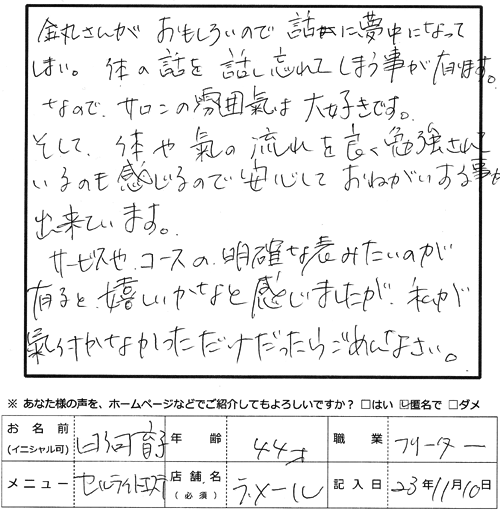 金丸さんが おもしろいので 話に夢中になって
しまい。体の話を 話し忘れてしまう事が有ります。
なので、サロンの雰囲氣は 大好きです。
そして、体や 氣の 流れを良く勉強されて
いるのも感じるので 安心して おねがいする事が
出来ています。
サービスや、コースの、明確な表みたいのが
有ると、嬉しいかなと感じましたが、私が
氣付かなかっただけだったらごめんなさい。
※ あなた様の声を、ホームページなどでご紹介してもよろしいですか？ □はい ☑匿名で □ダメ
お名前 (イニシャル可) 育子 年齢 44才 職業 フリーター
メニュー セルライトエステ 店舗名 (必須) ラ・メール 記入日 23年11月10日